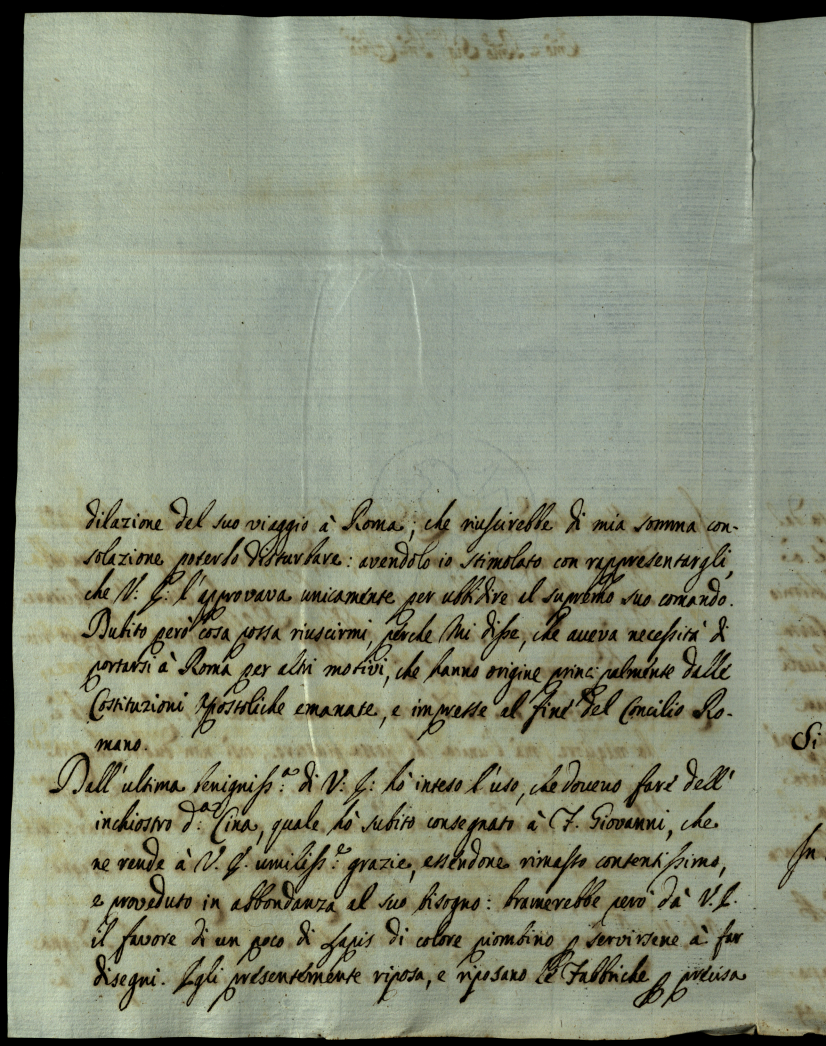 dilazione del suo viaggio à Roma; che riuscirebbe di mia somma con-
solazione poterlo disturbare: avendolo io stimolato con rappresentargli,
che V: E: l'approvava unicamente per ubbidire al supremo suo comando.
Dubito però cosa possa riuscirmi, perche mi disse, che aveva necessità di
portarsi à Roma per altri motivi, che hanno origine principalmente dalle
Costituzioni Apostoliche emanate, e impresse al fine del Concilio Ro-
mano.
Dall'ultima benigniss:ª di V: E: hò inteso l'uso, che dovevo fare dell'
inchiostro d:ª Cina, quale hò subito consegnato à F. Giovanni, che
ne rende à V. E. umiliss:ᵉ grazie, essendone rimasto contentissimo,
e proveduto in abbondanza al suo bisogno: bramerebbe però dà V. E.
il favore di un poco di Lapis di colore piombino p servirsene à far
disegni. Egli presentemente riposa, e riposano le Fabbriche p precisa
Si
In